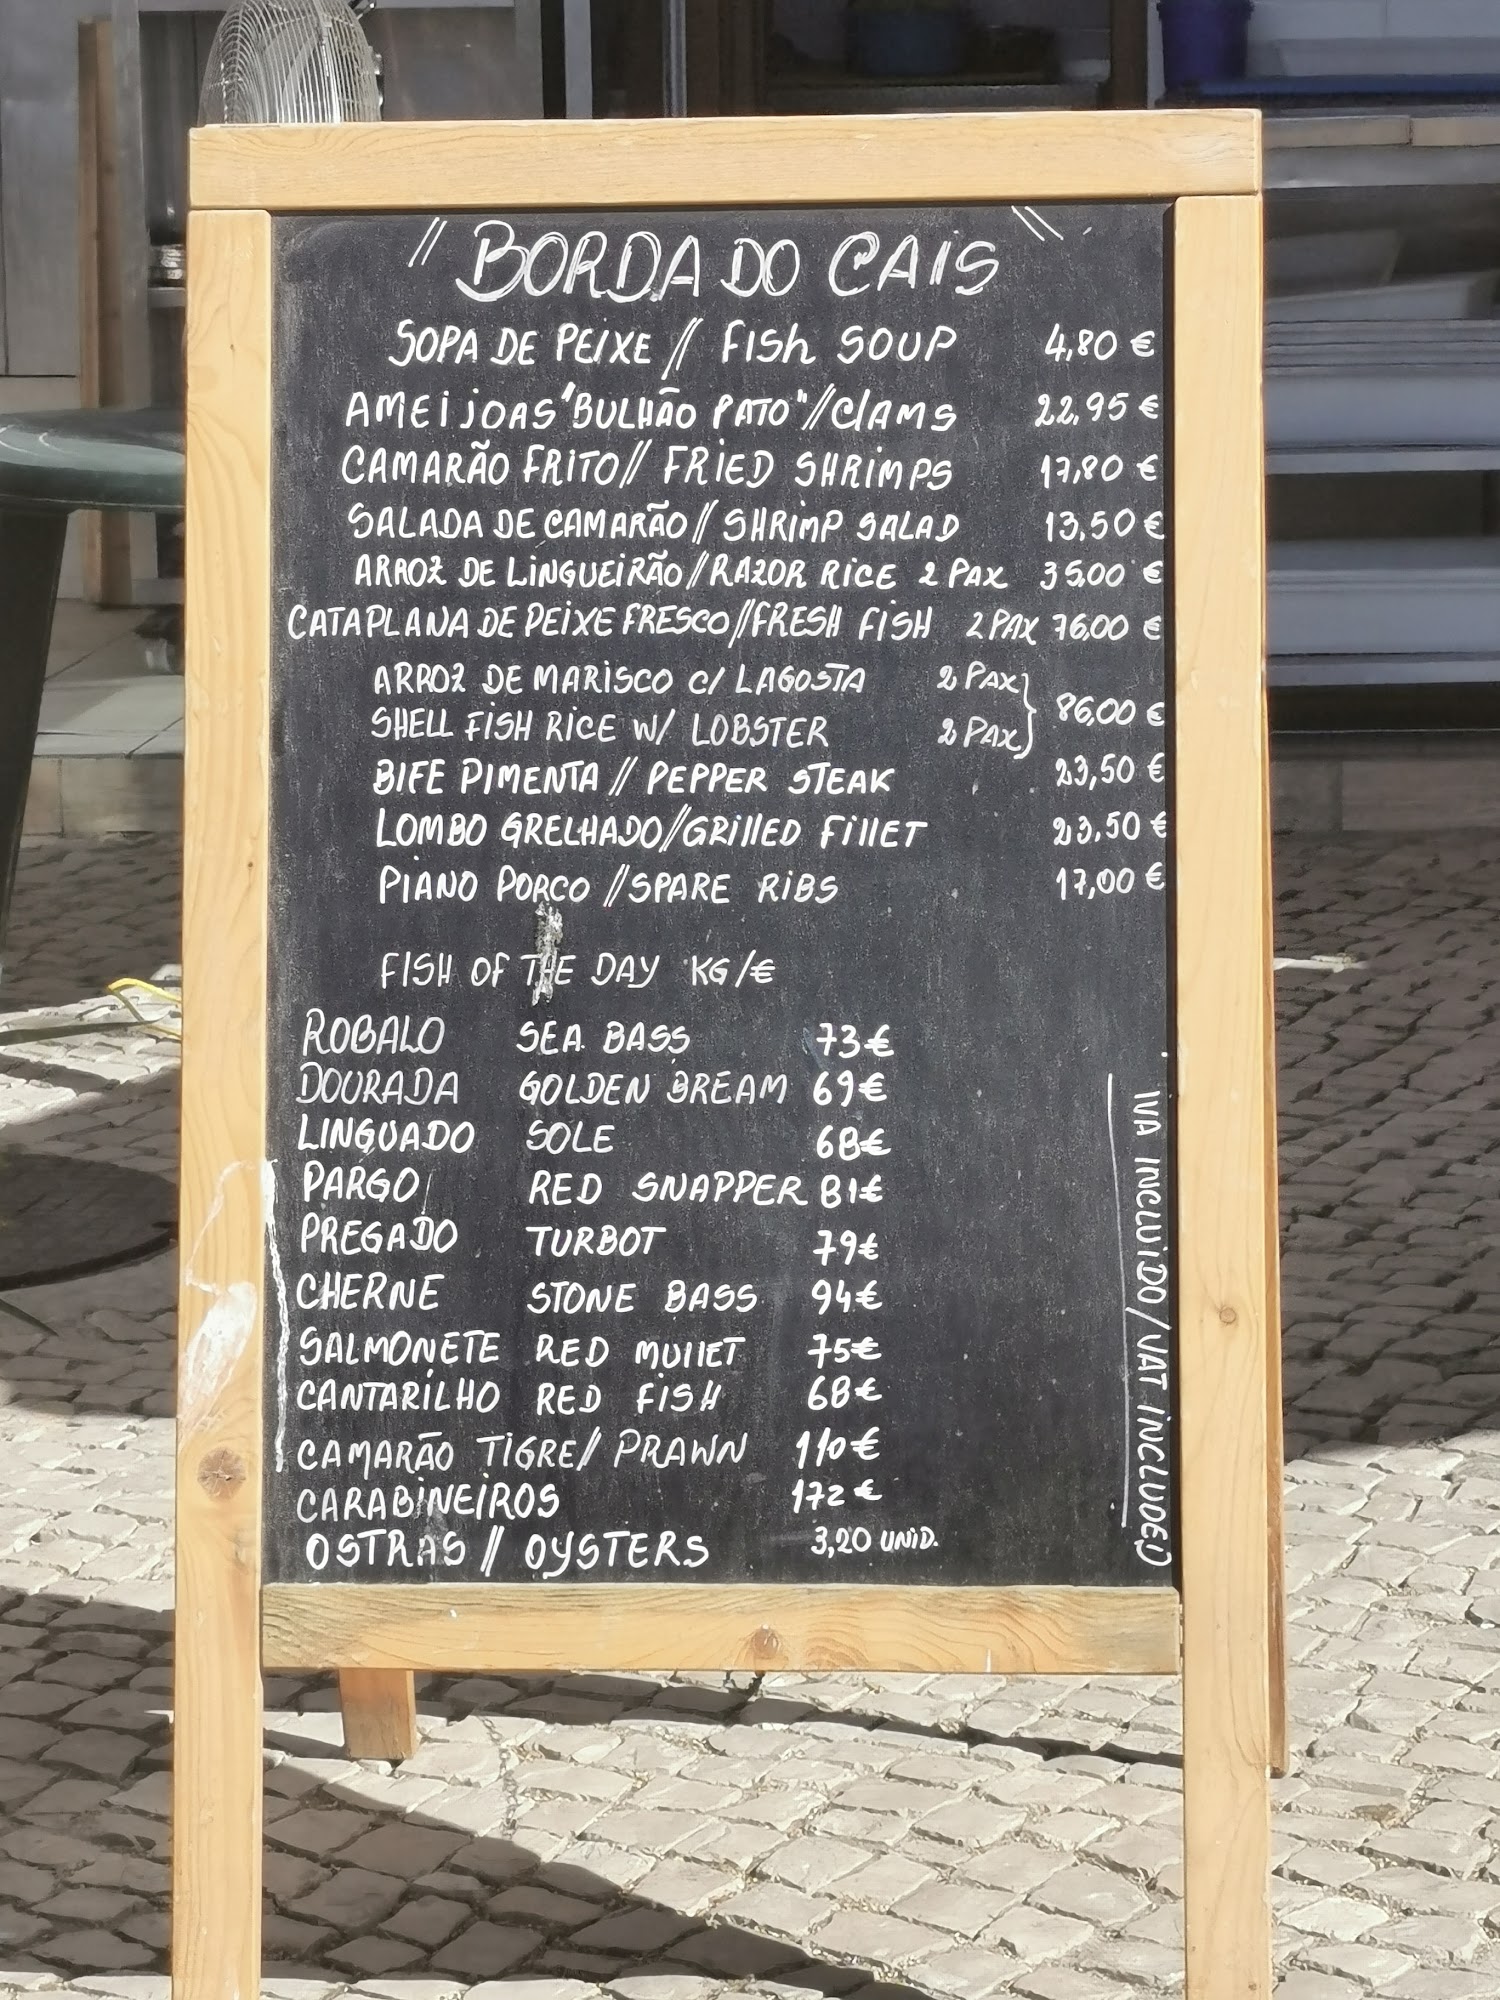 "BORDA DO CAIS"
SOPA DE PEIXE // FISh SOUP 4,80 €
AMEIJOAS "BULHÃO PATO" // ClAMS 22,95 €
CAMARÃO FRITO // FRIED SHRIMPS 17,80 €
SALADA DE CAMARÃO // SHRIMP SALAD 13,50 €
ARROZ DE LINGUEIRÃO // RAZOR RICE 2 PAX 35,00 €
CATAPLANA DE PEIXE FRESCO // FRESH FISH 2 PAX 76,00 €
ARROZ DE MARISCO C/ LAGOSTA 2 PAX
SHELL FISH RICE W/ LOBSTER 2 PAX } 86,00 €
BIFE PIMENTA // PEPPER STEAK 23,50 €
LOMBO GRELHADO // GRIllED FIllET 23,50 €
PIANO PORCO // SPARE RIBS 17,00 €
FISH OF THE DAY KG/€
ROBALO SEA BASS 73€
DOURADA GOLDEN BREAM 69€
LINGUADO SOLE 68€
PARGO RED SNAPPER 81€
PREGADO TURBOT 79€
CHERNE STONE BASS 94€
SALMONETE RED MUllET 75€
CANTARILHO RED FISH 68€
CAMARÃO TIGRE // PRAWN 110€
CARABINEIROS 172€
OSTRAS // OYSTERS 3,20 UNID.
IVA INCLUIDO / VAT INCLUDED